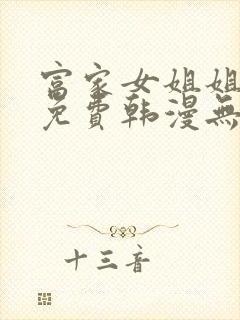 富家女姐姐
免費韩漫無
十三音